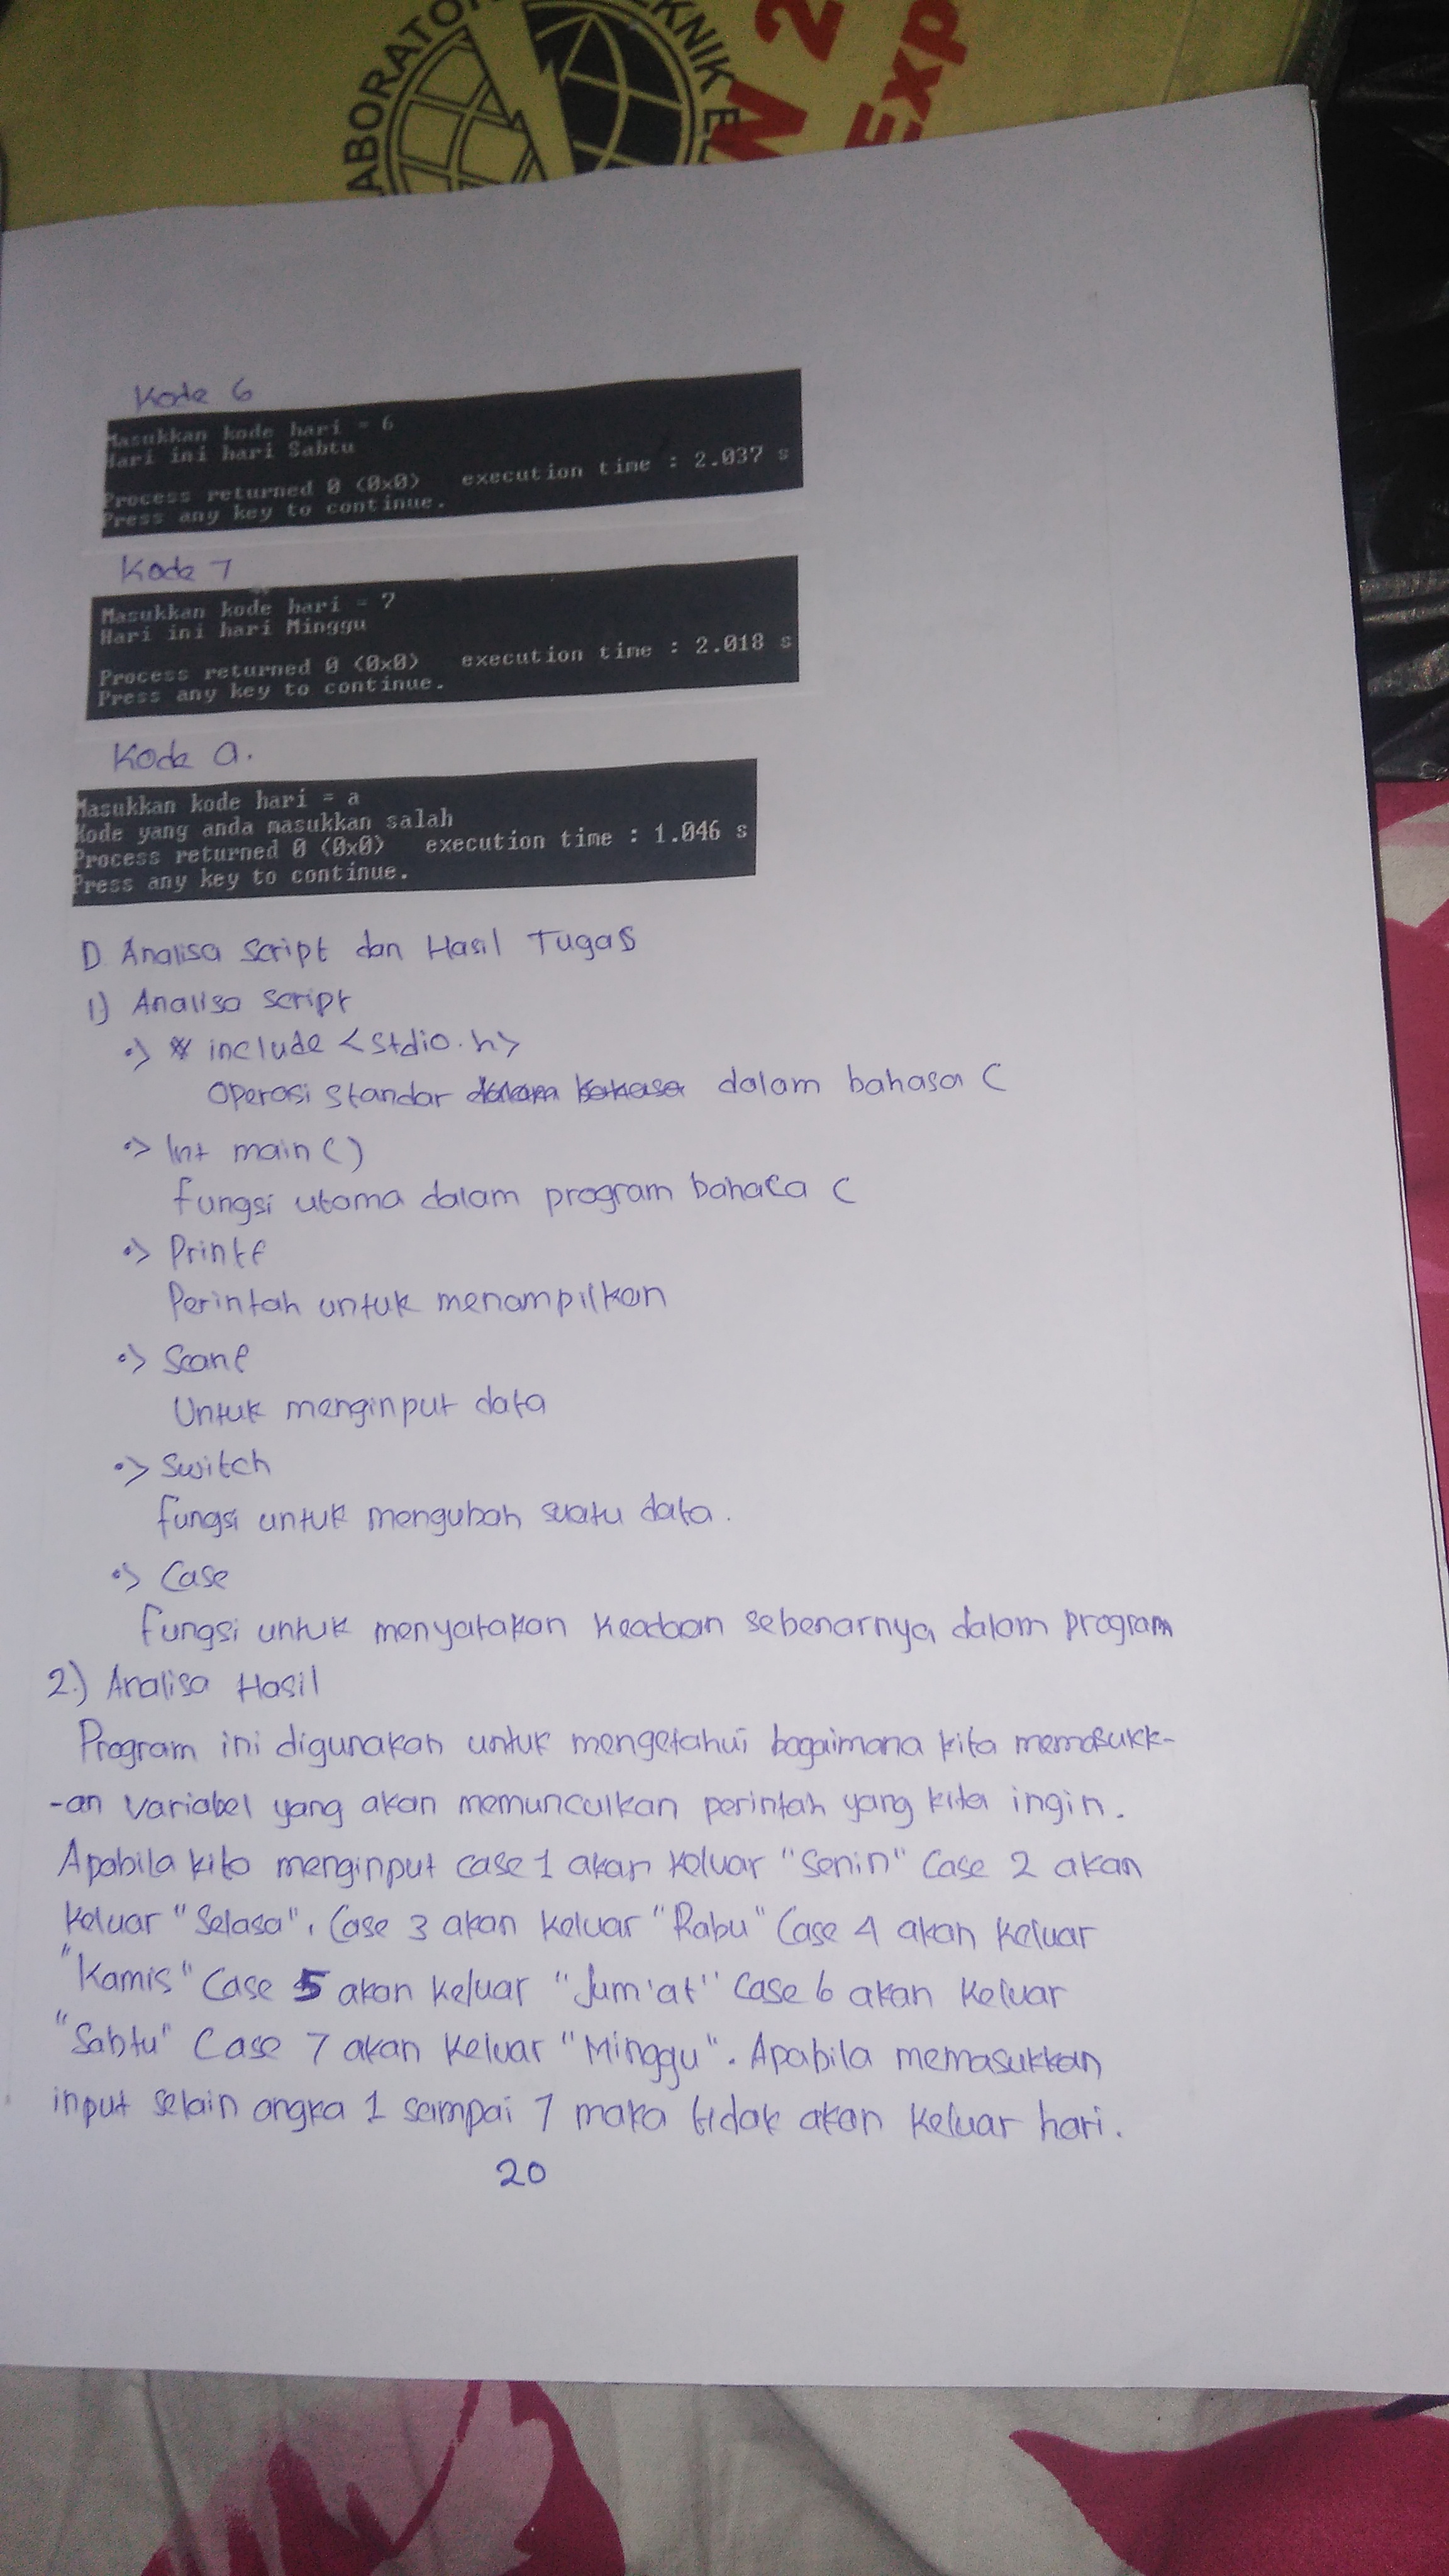 ABORATO
EKNIK E
W 2
Exp
Kode 6
Masukkan kode hari = 6
Hari ini hari Sabtu
Process returned 0 (0x0) execution time : 2.037 s
Press any key to continue.
Kode 7
Masukkan kode hari = 7
Hari ini hari Minggu
Process returned 0 (0x0) execution time : 2.018 s
Press any key to continue.
Kode a.
Masukkan kode hari = a
Kode yang anda masukkan salah
Process returned 0 (0x0) execution time : 1.046 s
Press any key to continue.
D Analisa Script dan Hasil Tugas
1) Analisa script
•> # include <stdio.h>
Operasi standar dalam bahasa dalam bahasa C
•> Int main ()
fungsi utama dalam program bahasa C
•> Printf
Perintah untuk menampilkan
•> Scanf
Untuk menginput data
•> Switch
fungsi untuk mengubah suatu data.
•> Case
fungsi untuk menyatakan keadaan sebenarnya dalam program
2.) Analisa Hasil
Program ini digunakan untuk mengetahui bagaimana kita memasukk-
-an variabel yang akan memunculkan perintah yang kita ingin.
Apabila kita menginput case 1 akan keluar "Senin" Case 2 akan
keluar "Selasa", Case 3 akan keluar "Rabu" Case 4 akan keluar
"Kamis" Case 5 akan keluar "Jum'at" Case 6 akan keluar
"Sabtu" Case 7 akan keluar "Minggu". Apabila memasukkan
input selain angka 1 sampai 7 maka tidak akan keluar hari.
20